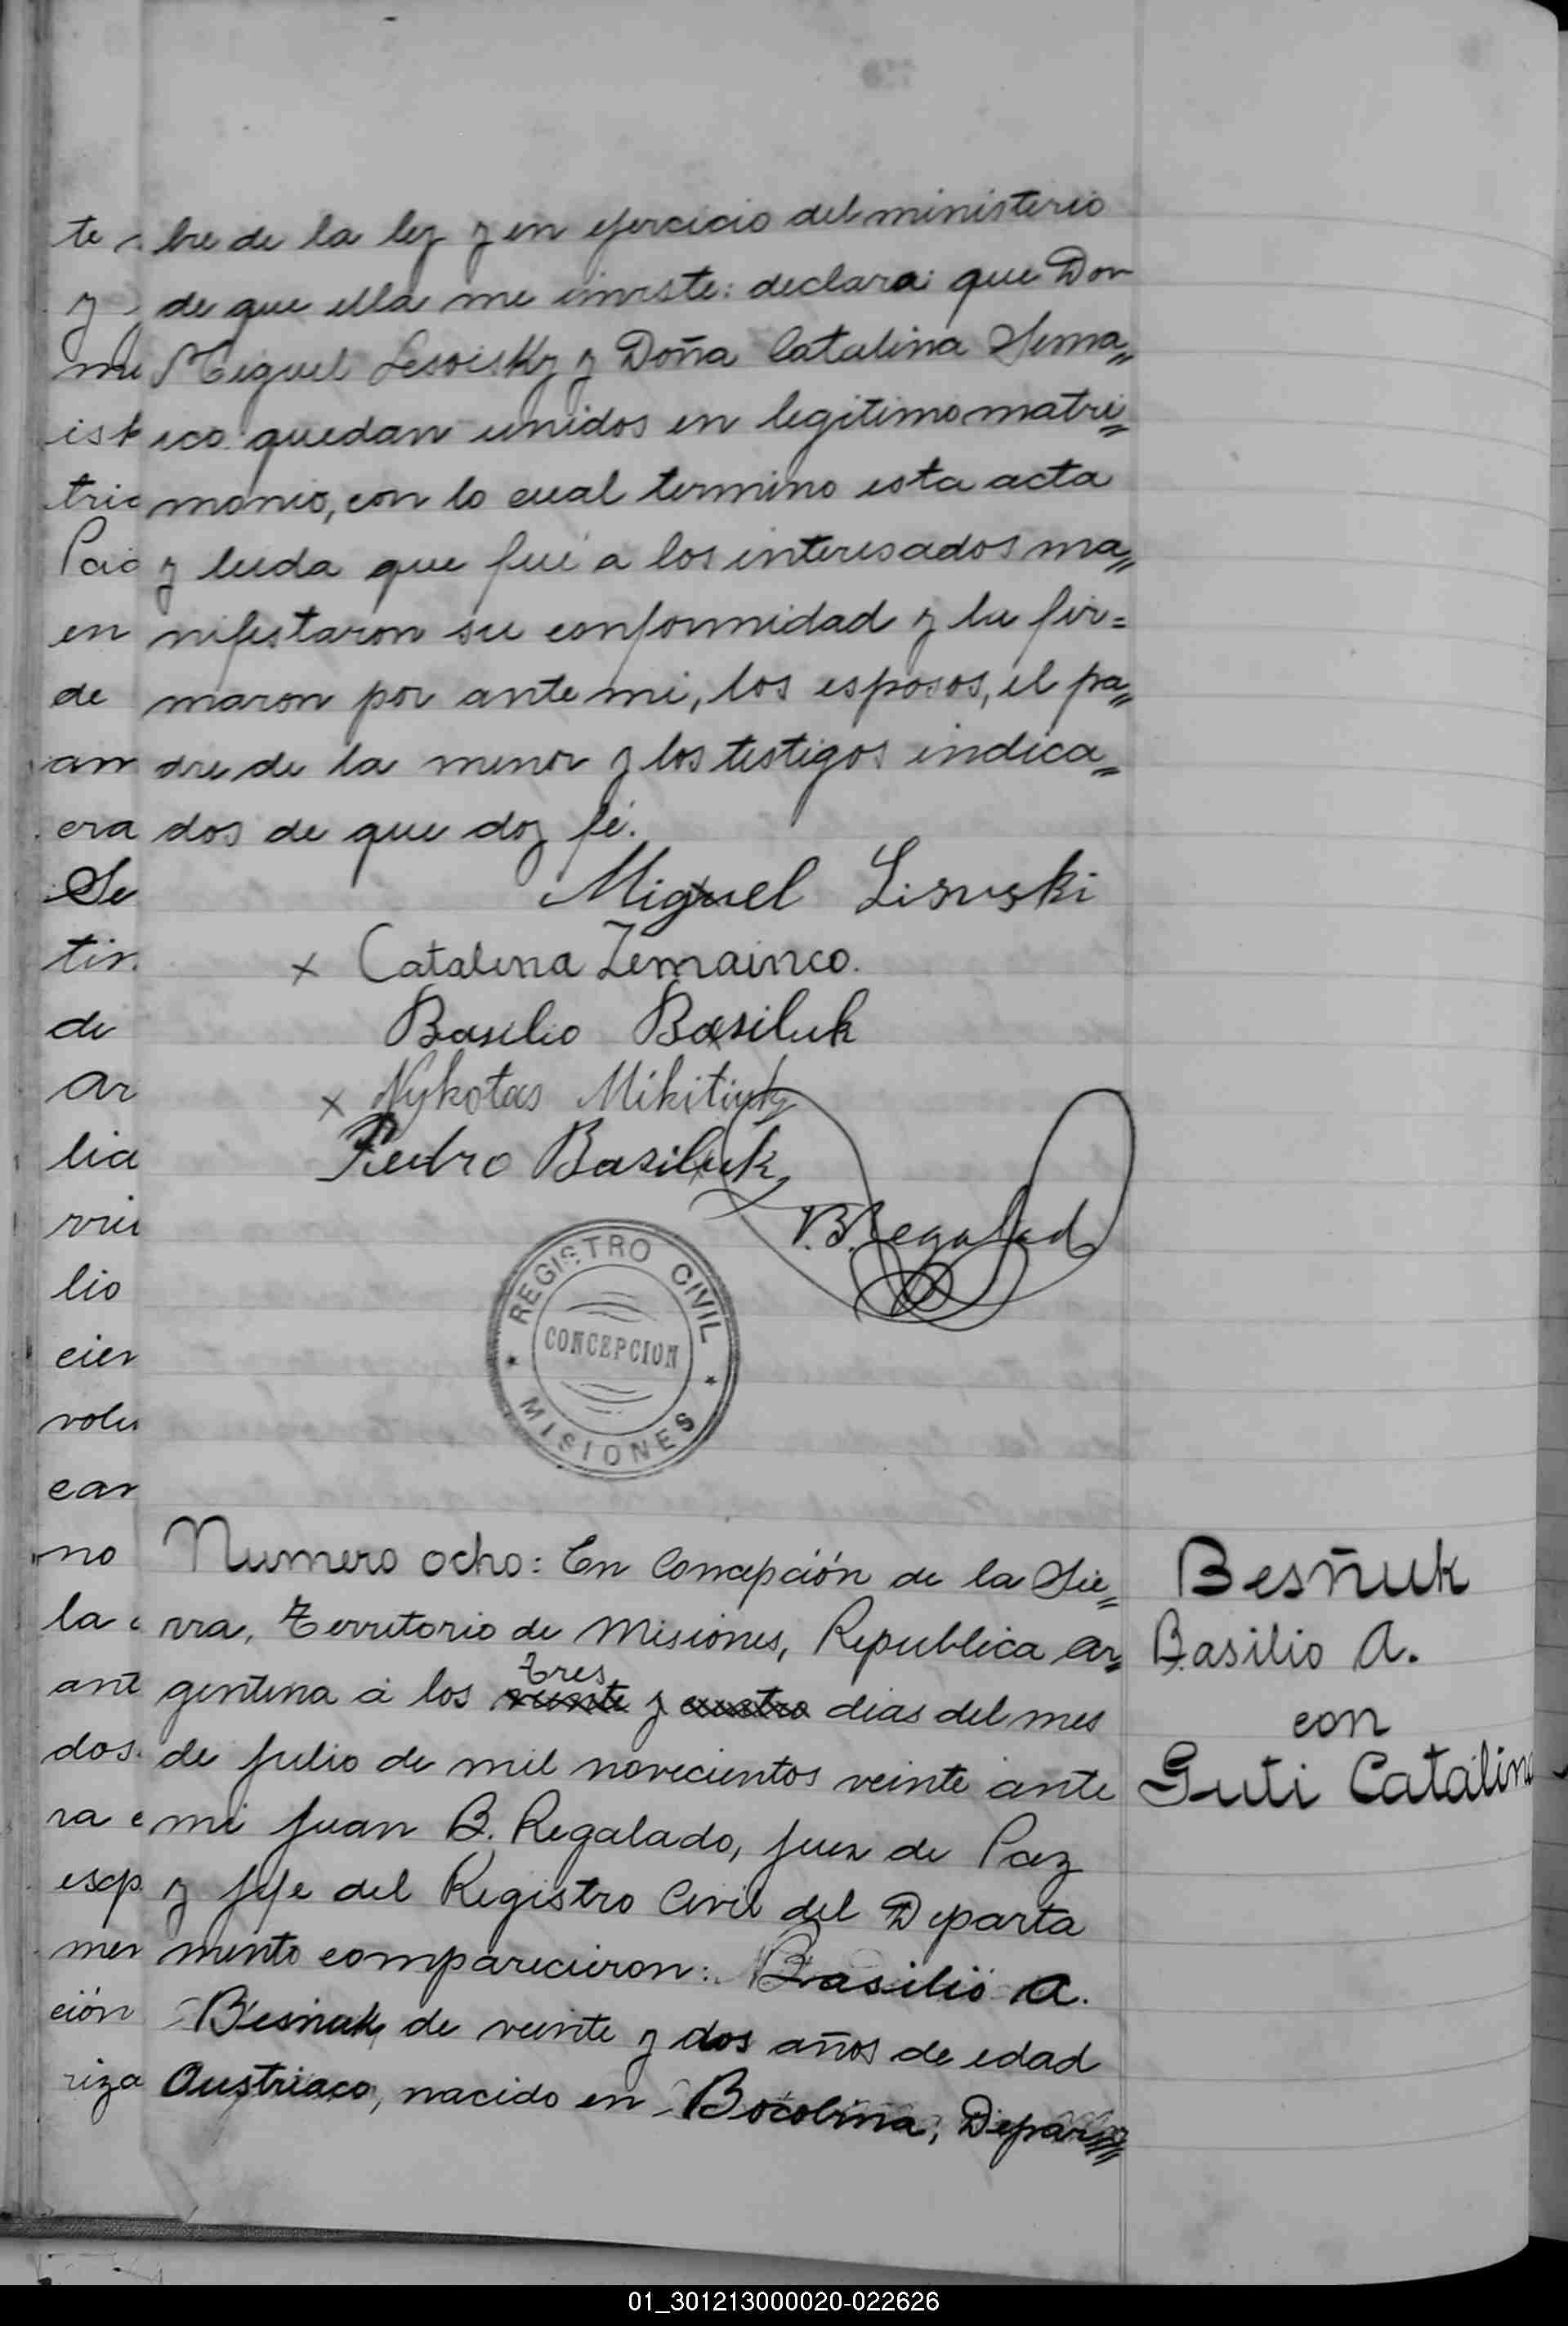 bre de la ley y en ejercicio del ministerio
de que ella me inviste: declara: que Don
Miguel Lesoisky y Doña Catalina Sema=
ico quedan unidos en legitimo matri=
monio, con lo cual termino esta acta
y leida que fué a los interesados ma=
nifestaron su conformidad y la fir=
maron por ante mi, los esposos, el pa=
dre de la menor y los testigos indica=
dos de que doy fé.
Miguel Lisuski
x Catalina Zemainco.
Basilio Basiluk
x Nykotas Mikitiuk
Piedro Basiluk
J.B. Regalado
REGISTRO CIVIL
CONCEPCION
MISIONES
Numero ocho: En Concepción de la Sie=
rra, Territorio de Misiones, Republica Ar=
gentina á los veinte tres y cuatro dias del mes
de Julio de mil novecientos veinte ante
mi Juan B. Regalado, Juez de Paz
y Jefe del Registro Civil del Departa
mento comparecieron: Basilio A.
Besñuk, de veinte y dos años de edad
Austriaco, nacido en Bocobina, Depar=
Besñuk
Basilio A.
con
Guti Catalina
te
y
mi
ist
tric
en
de
an
era
Se
tin
de
Ar
lia
lio
cier
volu
car
no
la
ant
dos.
ra e
esp.
mer
ción
riza
01_301213000020-022626